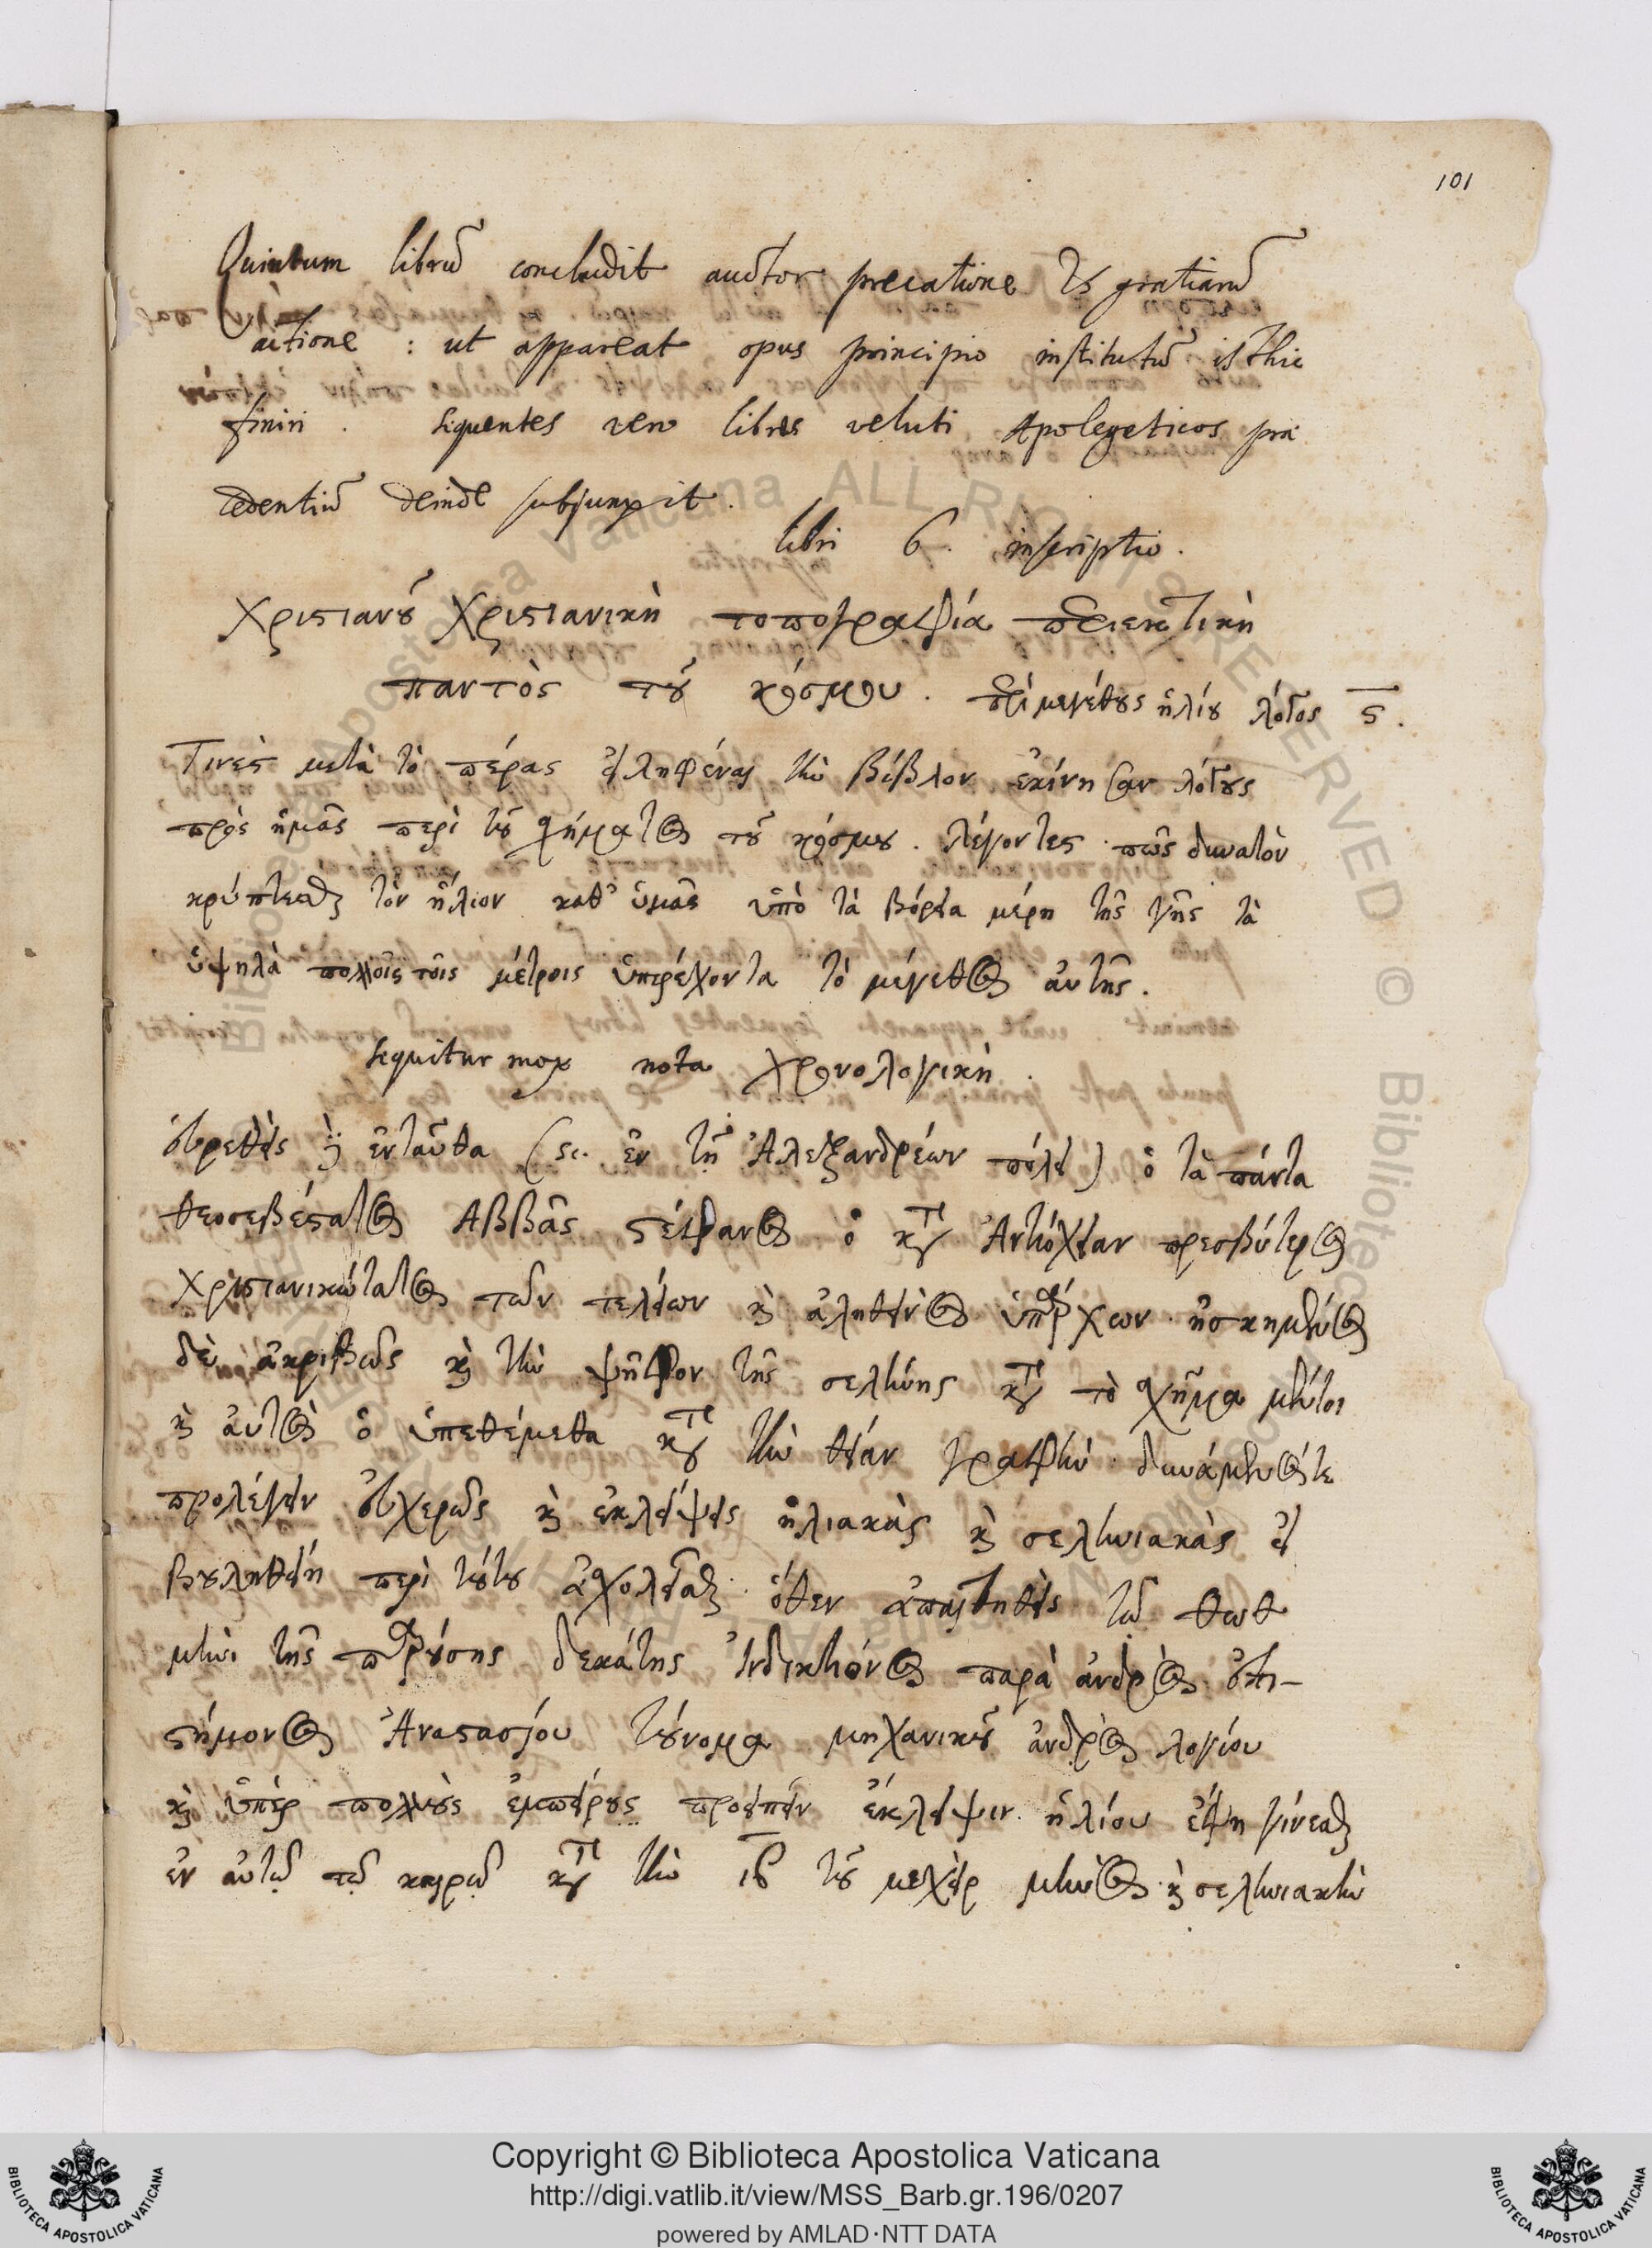 101
Quintum librũ concludit auctor precatione & gratiarũ
actione : ut appareat opus principio institutũ isthic
finiri . sequentes vero libros veluti Apologeticos præ
cedentiũ deinde subjunxit .
libri 6. inscriptio .
Χριστιανοῦ Χριστιανικὴ τοπογραφία περιεκτικὴ
παντὸς τοῦ κόσμου . περὶ μεγέθους ἡλίου λόγος ϛ .
Τινὲς μετὰ τὸ πέρας εἰληφέναι τὴν βίβλον ἐκίνησαν λόγους
πρὸς ἡμᾶς περὶ τοῦ σχήματος τοῦ κόσμου . λέγοντες πῶς δυνατὸν
κρύπτεσθαι τὸν ἥλιον καθ' ὑμᾶς ὑπὸ τὰ βόρεια μέρη τῆς γῆς τὰ
ὑψηλὰ πολλοῖς τοῖς μέτροις ὑπερέχοντα τὸ μέγεθος αὐτῆς .
sequitur mox nota χρονολογικὴ .
εὑρεθεὶς καὶ ἐνταῦθα (sc. ἐν τῇ Ἀλεξανδρέων πόλει) ὁ τὰ πάντα
θεοσεβέστατος Ἀββᾶς Στέφανος ὁ κατ' Ἀντιόχειαν πρεσβύτερος
χριστιανικώτατος τῶν τελείων καὶ ἀληθινὸς ὑπάρχων ἠσκημένος
δὲ ἀκριβῶς καὶ τὴν ψῆφον τῆς σελήνης κατὰ τὸ σχῆμα μέντοι
καὶ αὐτὸς ὃ ὑπεθέμεθα κατὰ τὴν θείαν γραφὴν δυνάμενός τε
προλέγειν εὐχερῶς καὶ ἐκλείψεις ἡλιακὰς καὶ σεληνιακὰς εἰ
βουληθείη περὶ τούτου ἀσχολεῖσθαι· ὅθεν ἀπαιτηθεὶς τῷ θωθ
μηνὶ τῆς παρούσης δεκάτης Ἰνδικτιόνος παρὰ ἀνδρὸς ἐπι-
στήμονος Ἀναστασίου τοὔνομα μηχανικοῦ ἀνδρὸς λογίου
καὶ ὑπὲρ πολλοὺς ἐμπείρους προειπεῖν ἔκλειψιν ἡλίου ἔφη γίνεσθαι
ἐν αὐτῷ τῷ καιρῷ κατὰ τὴν ιβ τοῦ μεχεὶρ μηνὸς καὶ σεληνιακὴν
Copyright © Biblioteca Apostolica Vaticana
http://digi.vatlib.it/view/MSS_Barb.gr.196/0207
powered by AMLAD·NTT DATA
BIBLIOTECA APOSTOLICA VATICANA
BIBLIOTECA APOSTOLICA VATICANA